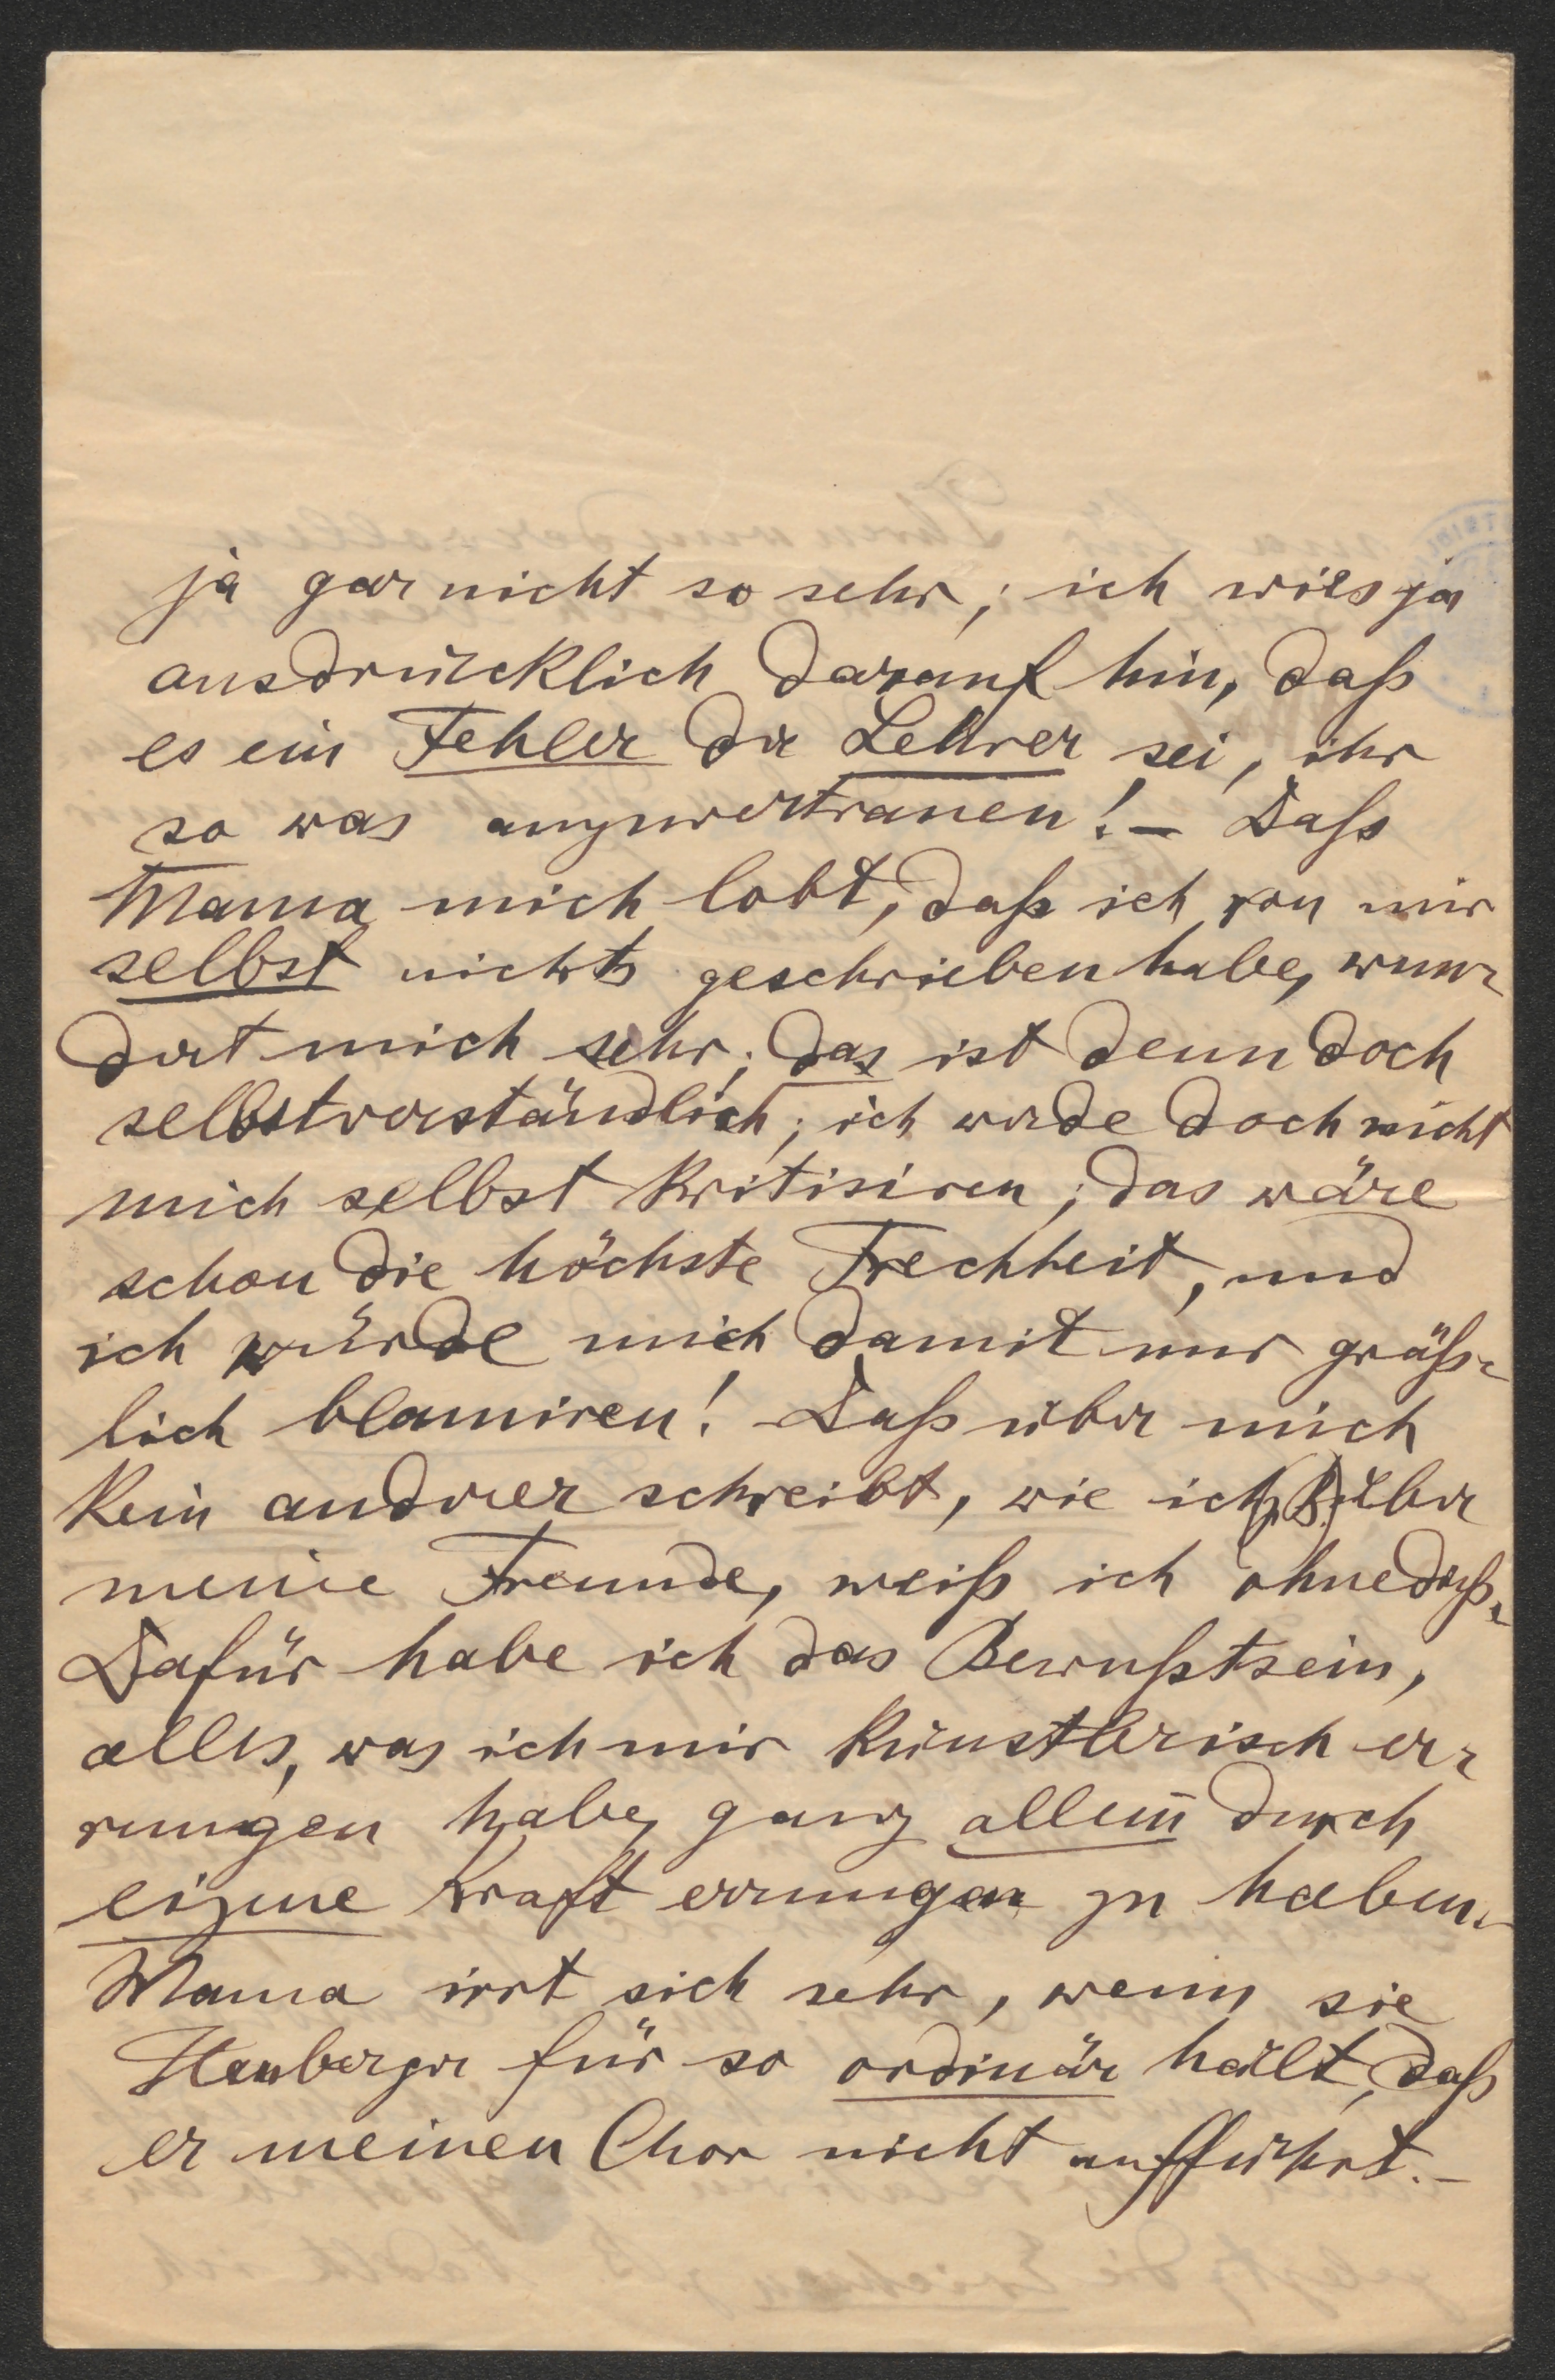 ja gar nicht so sehr; ich wies ja
ausdrücklich darauf hin, daß
es ein Fehler der Lehrer sei, ihr
so was anzuvertrauen! – Daß
Mama mich lobt, daß ich von mir
selbst nichts geschrieben habe, wun-
dert mich sehr; das ist denn doch
selbstverständlich; ich werde doch nicht
mich selbst kritisiren; das wäre
schon die höchste Frechheit, und
ich würde mich damit nur gräß-
lich blamiren! Daß über mich
kein andrer schreibt, wie ich (z. B.) über
meine Freunde, weiß ich ohnedieß.
Dafür habe ich das Bewußtsein,
alles, was ich mir künstlerisch er-
rungen habe, ganz allein durch
eigene Kraft errungen zu haben.–
Mama irrt sich sehr, wenn sie
Heuberger für so ordinär hält, daß
er meinen Chor nicht aufführt. –